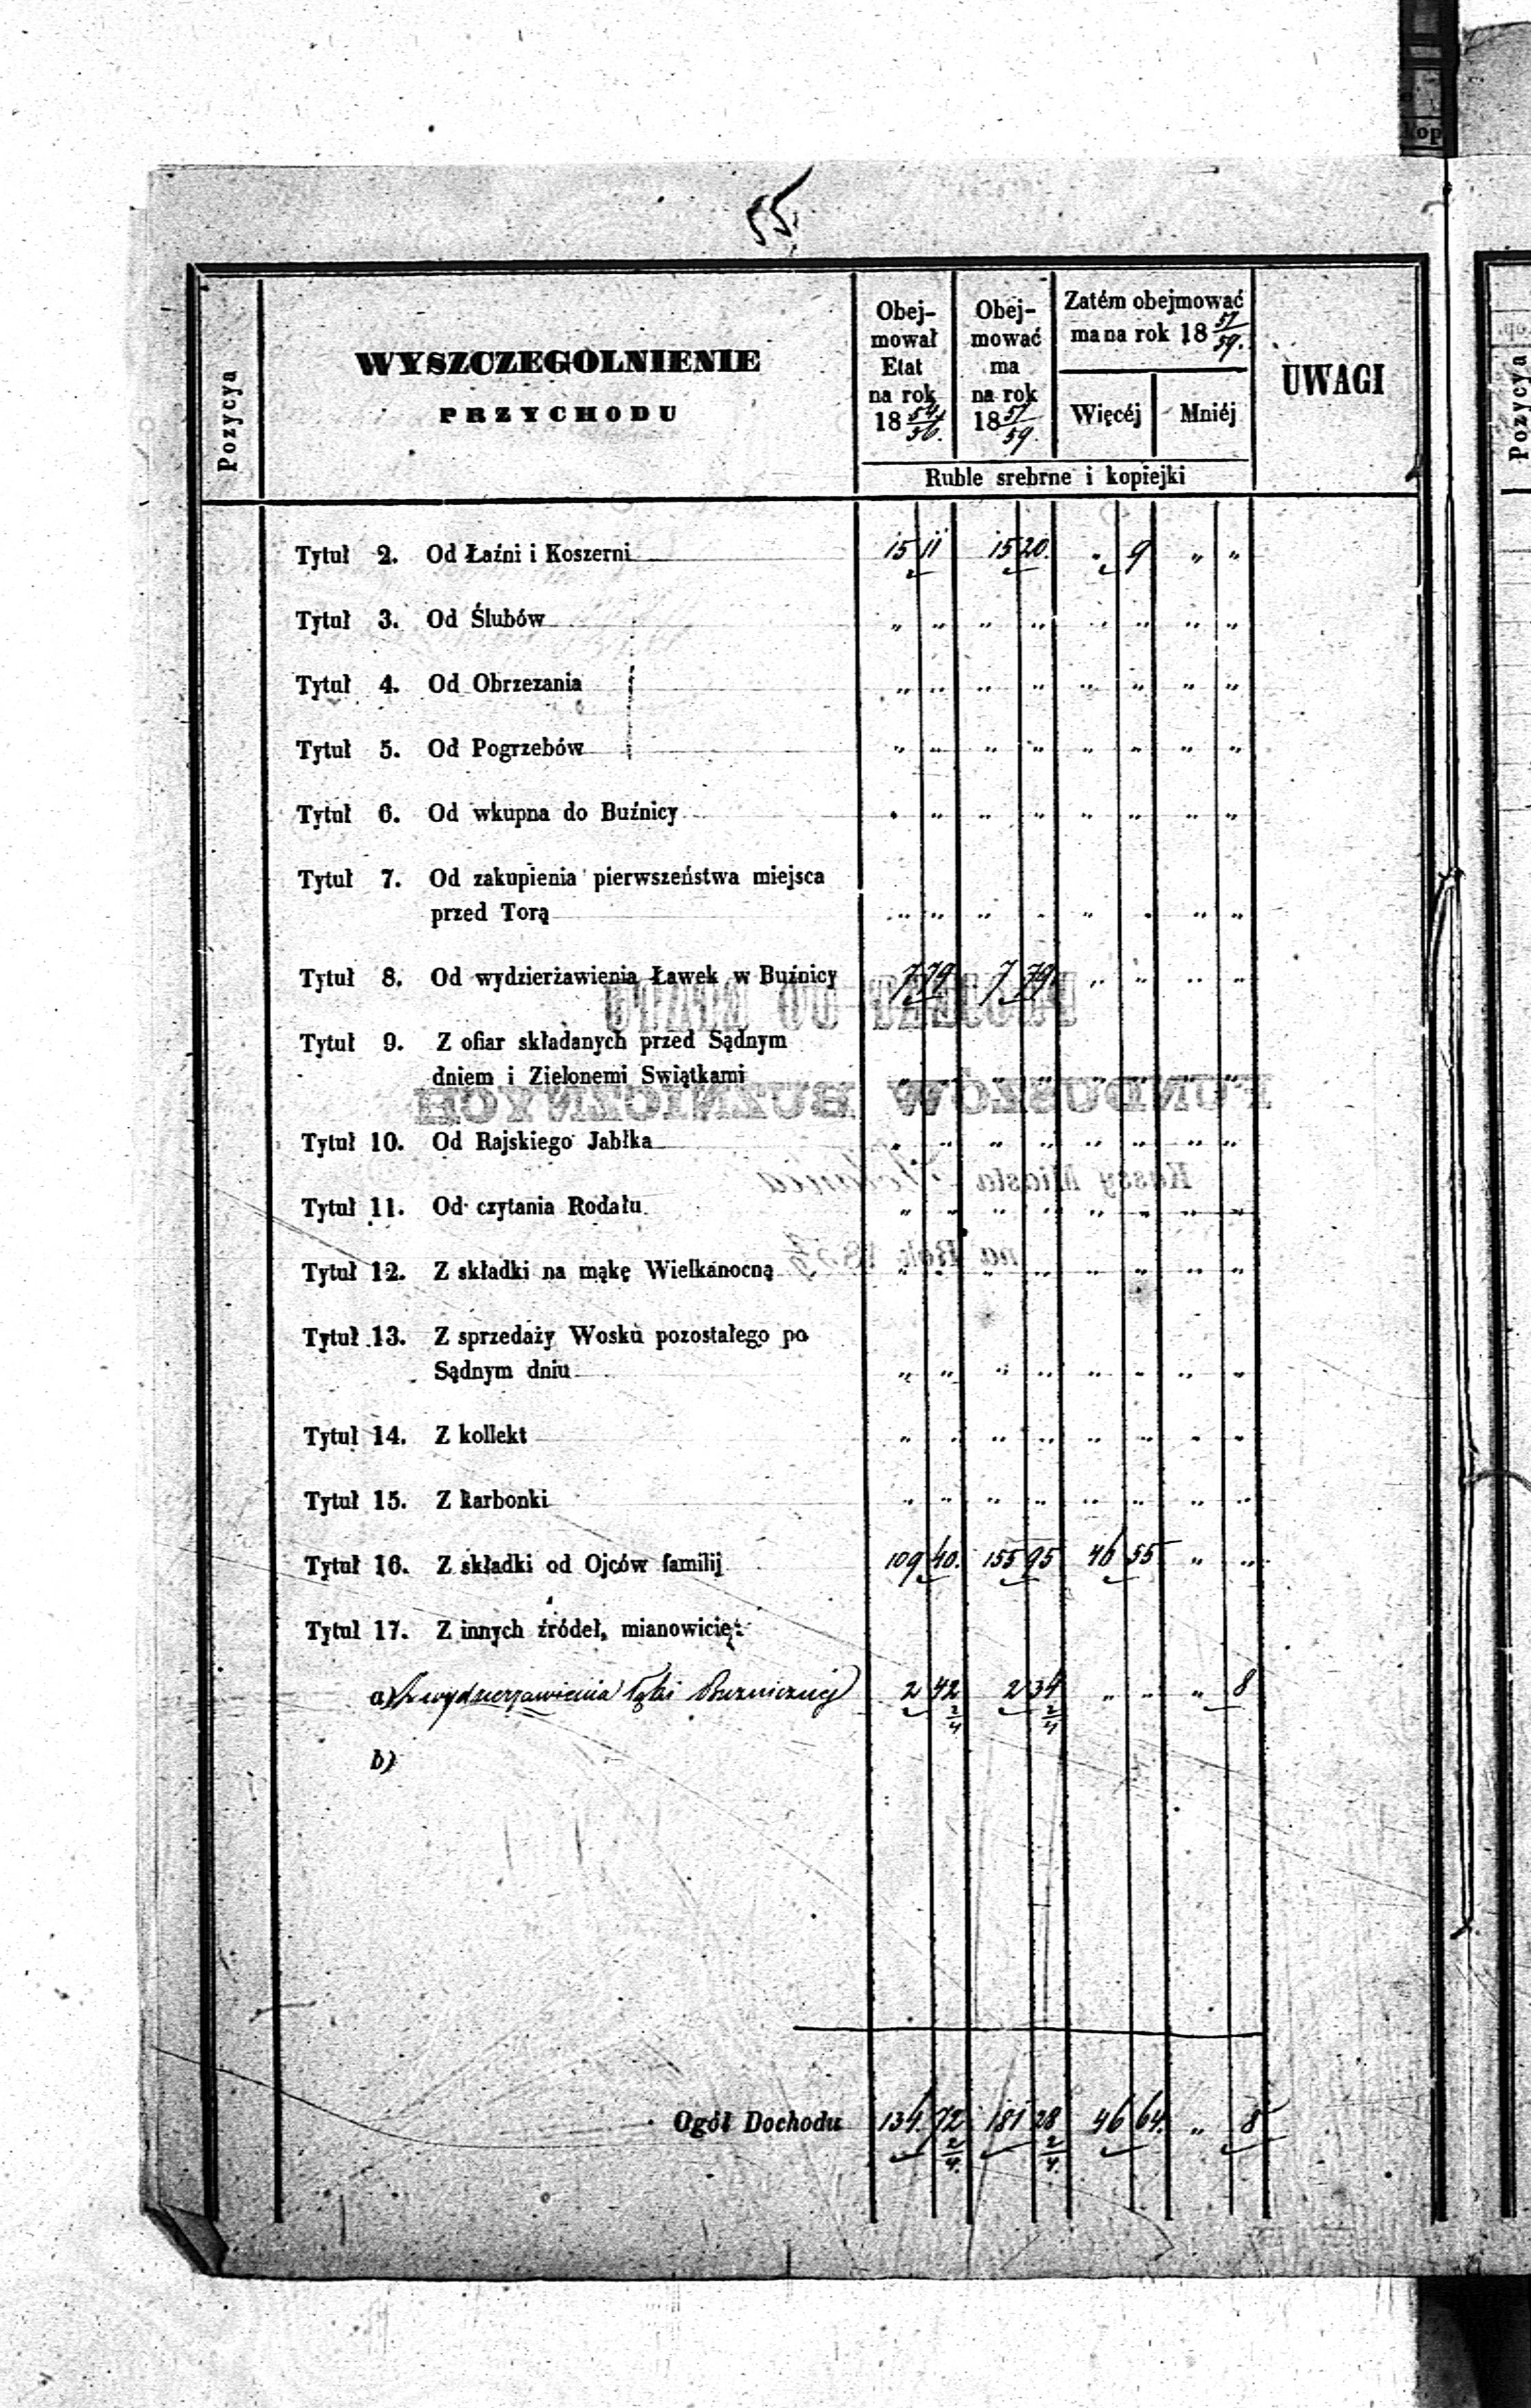 kop
55.
Pozycya
WYSZCZEGOLNIENIE
PRZYCHODU
Obej-
mował
Etat
na rok
18 54/56.
Obej-
mować
ma
na rok
18 57/59.
Zatém obejmować
ma na rok 18 57/59.
Więcéj Mniéj
Ruble srebrne i kopiejki
UWAGI
Pozycya
Tytuł 2. Od Łaźni i Koszerni 15 11 15 20. " 9 " "
Tytuł 3. Od Ślubów " " " " " " " "
Tytuł 4. Od Obrzezania " " " " " " " "
Tytuł 5. Od Pogrzebów " " " " " " " "
Tytuł 6. Od wkupna do Buźnicy " " " " " " " "
Tytuł 7. Od zakupienia pierwszeństwa miejsca
przed Torą " " " " " " " "
Tytuł 8. Od wydzierżawienia Ławek w Buźnicy 7 79 7 79. " " " "
Tytuł 9. Z ofiar składanych przed Sądnym
dniem i Zielonemi Swiątkami " " " " " " " "
Tytuł 10. Od Rajskiego Jabłka " " " " " " " "
Tytuł 11. Od czytania Rodału " " " " " " " "
Tytuł 12. Z składki na mąkę Wielkanocną " " " " " " " "
Tytuł 13. Z sprzedaży Wosku pozostałego po
Sądnym dniu " " " " " " " "
Tytuł 14. Z kollekt " " " " " " " "
Tytuł 15. Z karbonki " " " " " " " "
Tytuł 16. Z składki od Ojców familij 109 40. 155 95 46 55 " "
Tytuł 17. Z innych źródeł, mianowicie:
a) Z wydzierżawienia łąki Buzniczney 2 42 2/4 2 34 2/4 " " " 8
b)
Ogół Dochodu 134. 72 2/4. 181 28 2/4. 46 64. " 8